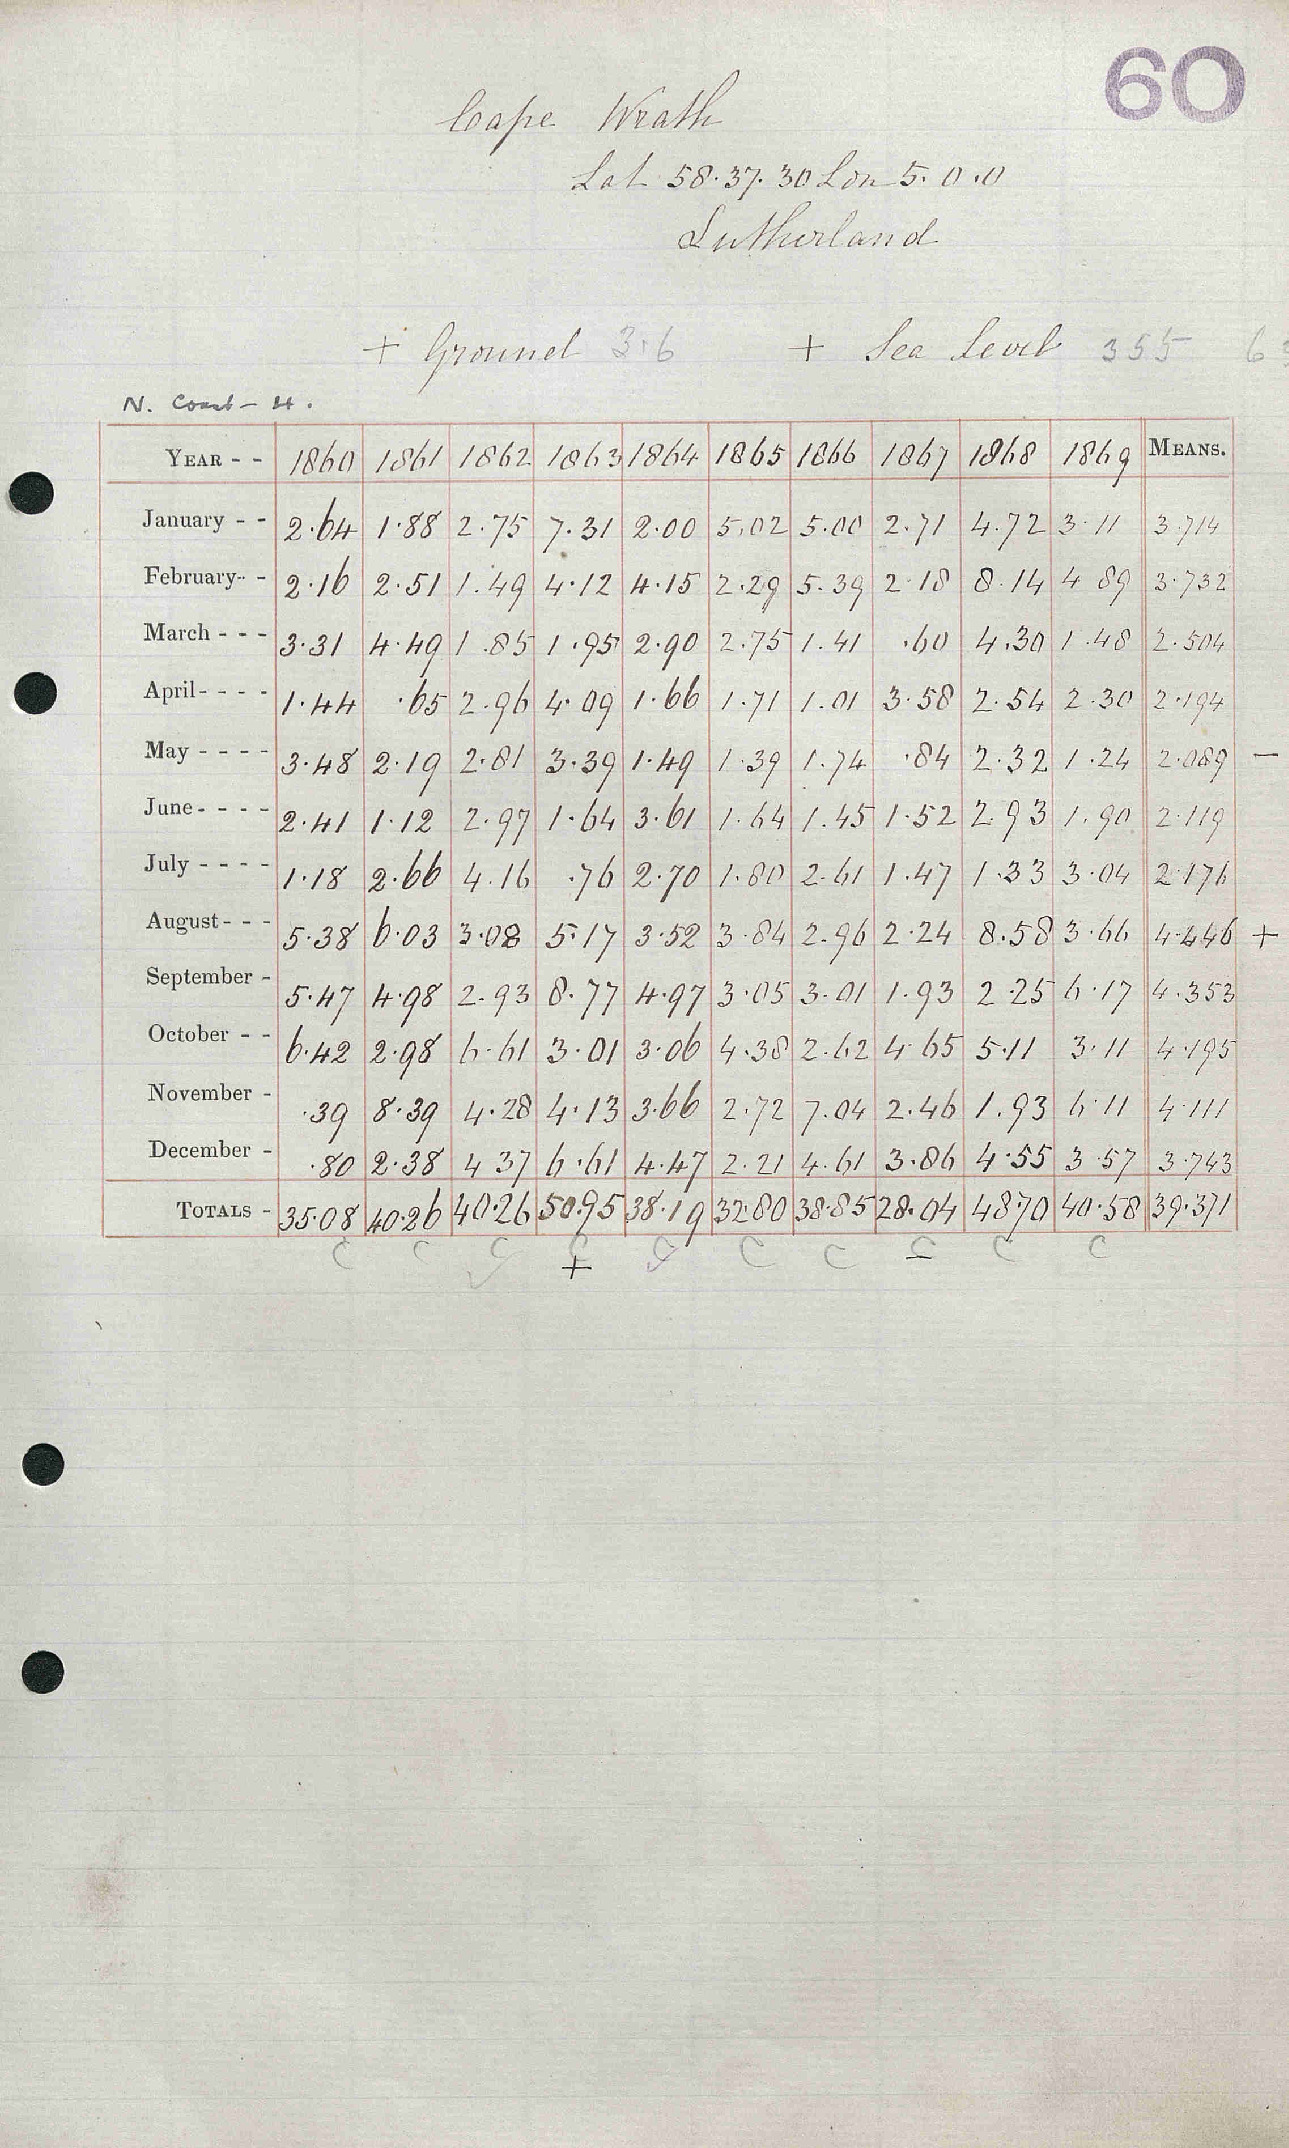 60
Cape Wrath
Lat 58.37.30 Lon 5.0.0
Sutherland
+ Ground 3.6 + Sea Level 355
N. Coast - H.
YEAR - - 1860 1861 1862 1863 1864 1865 1866 1867 1868 1869 MEANS.
January - - 2.64 1.88 2.75 7.31 2.00 5.02 5.00 2.71 4.72 3.11 3.714
February - - 2.16 2.51 1.49 4.12 4.15 2.29 5.39 2.18 8.14 4.89 3.732
March - - - 3.31 4.49 1.85 1.95 2.90 2.75 1.41 .60 4.30 1.48 2.504
April - - - - 1.44 .65 2.96 4.09 1.66 1.71 1.01 3.58 2.54 2.30 2.194
May - - - - 3.48 2.19 2.81 3.39 1.49 1.39 1.74 .84 2.32 1.24 2.089 —
June - - - - 2.41 1.12 2.97 1.64 3.61 1.64 1.45 1.52 2.93 1.90 2.119
July - - - - 1.18 2.66 4.16 .76 2.70 1.80 2.61 1.47 1.33 3.04 2.171
August - - - 5.38 6.03 3.08 5.17 3.52 3.84 2.96 2.24 8.58 3.66 4.446 +
September - 5.47 4.98 2.93 8.77 4.97 3.05 3.01 1.93 2.25 6.17 4.353
October - - 6.42 2.98 6.61 3.01 3.06 4.38 2.62 4.65 5.11 3.11 4.195
November - .39 8.39 4.28 4.13 3.66 2.72 7.04 2.46 1.93 6.11 4.111
December - .80 2.38 4.37 6.61 4.47 2.21 4.61 3.86 4.55 3.57 3.743
TOTALS - 35.08 40.26 40.26 50.95 38.19 32.80 38.85 28.04 48.70 40.58 39.371
C C C C C C C C C C
+ —